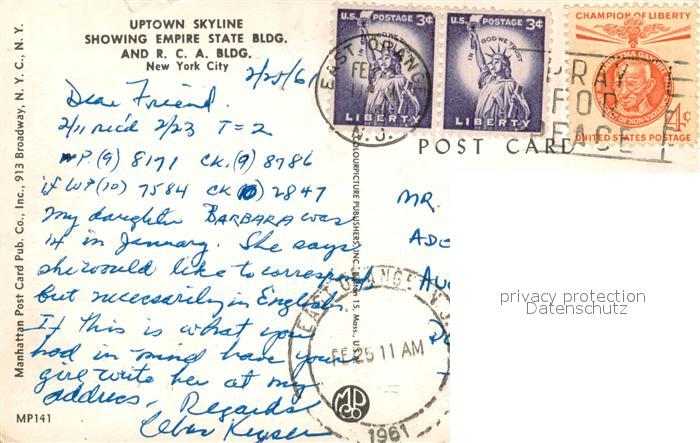 UPTOWN SKYLINE
SHOWING EMPIRE STATE BLDG.
AND R. C. A. BLDG.
New York City
2/25/61
Dear Friend.
2/11 rec'd 2/23 T = 2
WP. (9) 8171 CK. (9) 8786
if WP (10) 7584 CK (10) 2847
my daughter BARBARA was
14 in January. She says
she would like to correspond
but necessarily in English.
If this is what you
had in mind have your
girl write her at my
address. Regards
Keyser
MP141
Manhattan Post Card Pub. Co., Inc., 913 Broadway, N. Y. C., N. Y.
COLOURPICTURE PUBLISHERS, INC., Boston 15, Mass., U.S.
U.S. POSTAGE 3¢
IN GOD WE TRUST
LIBERTY
U.S. POSTAGE 3¢
IN GOD WE TRUST
LIBERTY
CHAMPION OF LIBERTY
MAHATMA GANDHI
OF NON-VIOLENCE
4¢
UNITED STATES POSTAGE
EAST ORANGE
FEB
N. J.
PRAY
FOR
PEACE
POST CARD
MR.
privacy protection
Datenschutz
EAST ORANGE, N.J.
FE 25 11 AM
1961
MP
CO